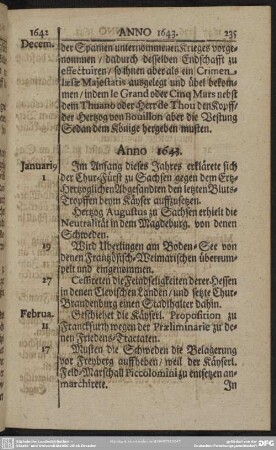 1642 ANNO 1643. 235
Decem. der Spanien unternommenen Krieges vorge-
nommen / dadurch desselben Endschafft zu
effectuiren / so ihnen aber als ein Crimen
læsæ Majestatis ausgelegt und übel bekom-
men / indem le Grand oder Cinq Mars nebst
dem Thuano oder Herr de Thou den Kopff /
der Hertzog von Bouillon aber die Vestung
Sedan dem Könige hergeben musten.
Anno 1643.
Januari9 Im Anfang dieses Jahres erklärete sich
1 der Chur-Fürst zu Sachsen gegen dem Ertz-
Hertzoglichen Abgesandten den letzten Bluts-
Tropffen beym Käyser auffzusetzen.
Hertzog Augustus zu Sachsen erhielt die
Neutralität in dem Magdeburg. von denen
Schweden.
19 Wird Uberlingen am Boden-See von
denen Frantzösisch-Weimarischen überrum-
pelt und eingenommen.
27 Cessireten die Feindseligkeiten derer Hessen
in denen Clevischen Landen / und setzte Chur-
Brandenburg einen Stadthalter dahin.
Februa. Geschiehet die Käyserl. Proposition zu
11 Franckfurth wegen der Præliminarie zu de-
nen Friedens-Tractaten.
17 Musten die Schweden die Belagerung
vor Freyberg auffheben / weil der Käyserl.
Feld-Marschall Piccolomini zu entsetzen an-
marchirete.
In